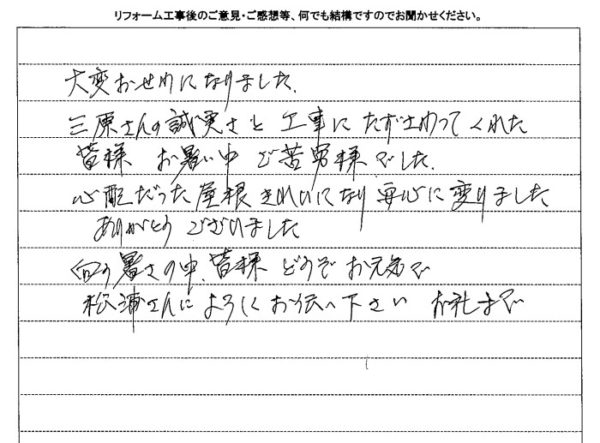 リフォーム工事後のご意見・ご感想等、何でも結構ですのでお聞かせください。
大変おせわになりました、
三原さんの誠実さと 工事に たずさわって くれた
皆様 お暑い中 ご苦労様でした、
心配だった屋根 きれいになり 安心に変りました
ありがとう ございました
この暑さの中、皆様 どうぞ お元気で
松浦さんに よろしく お伝へ下さい お礼まで